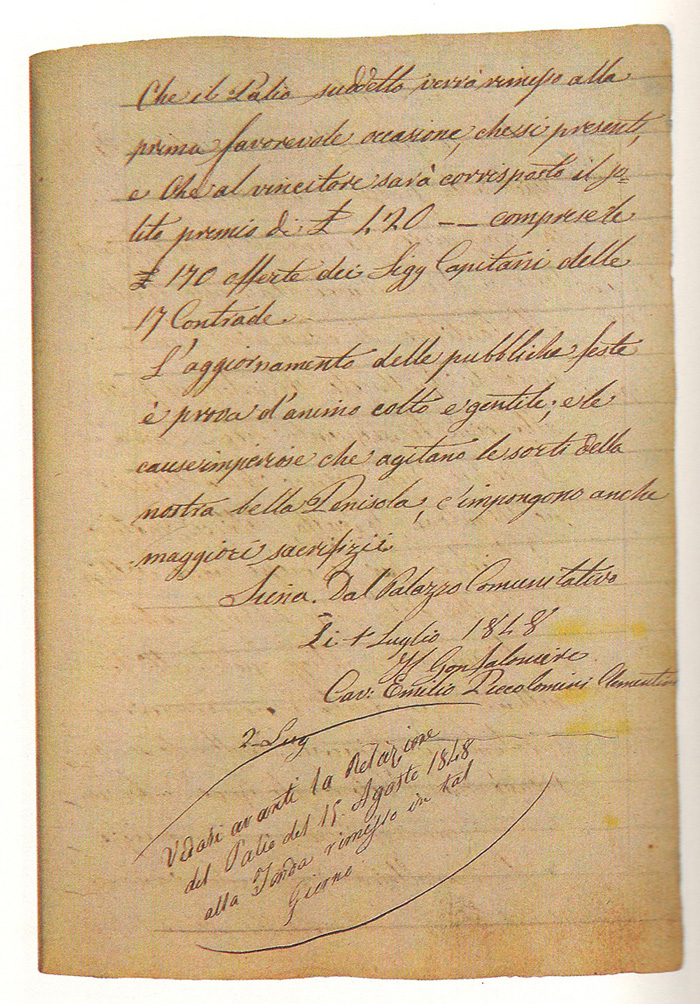 Che il Palio suddetto verrà rimesso alla
prima favorevole occasione, che si presenti,
e che al vincitore sarà corrisposto il so-
lito premio di £ 420 -- comprese le
£ 170 offerte dei Sigg Capitani delle
17 Contrade.
L'aggiornamento delle pubbliche feste
è prova d'animo colto e gentile; e le
cause imperiose che agitano le sorti della
nostra bella Penisola, c'impongono anche
maggiori sacrifizii
Siena. Dal Palazzo Comunitativo
Li 1 Luglio 1848
Il Gonfaloniere
Cav: Emilio Piccolomini Clementini
2 Lug
Vedasi avanti la Relazione
del Palio del 15. Agosto 1848
alla Tonda rimesso in tal
Giorno